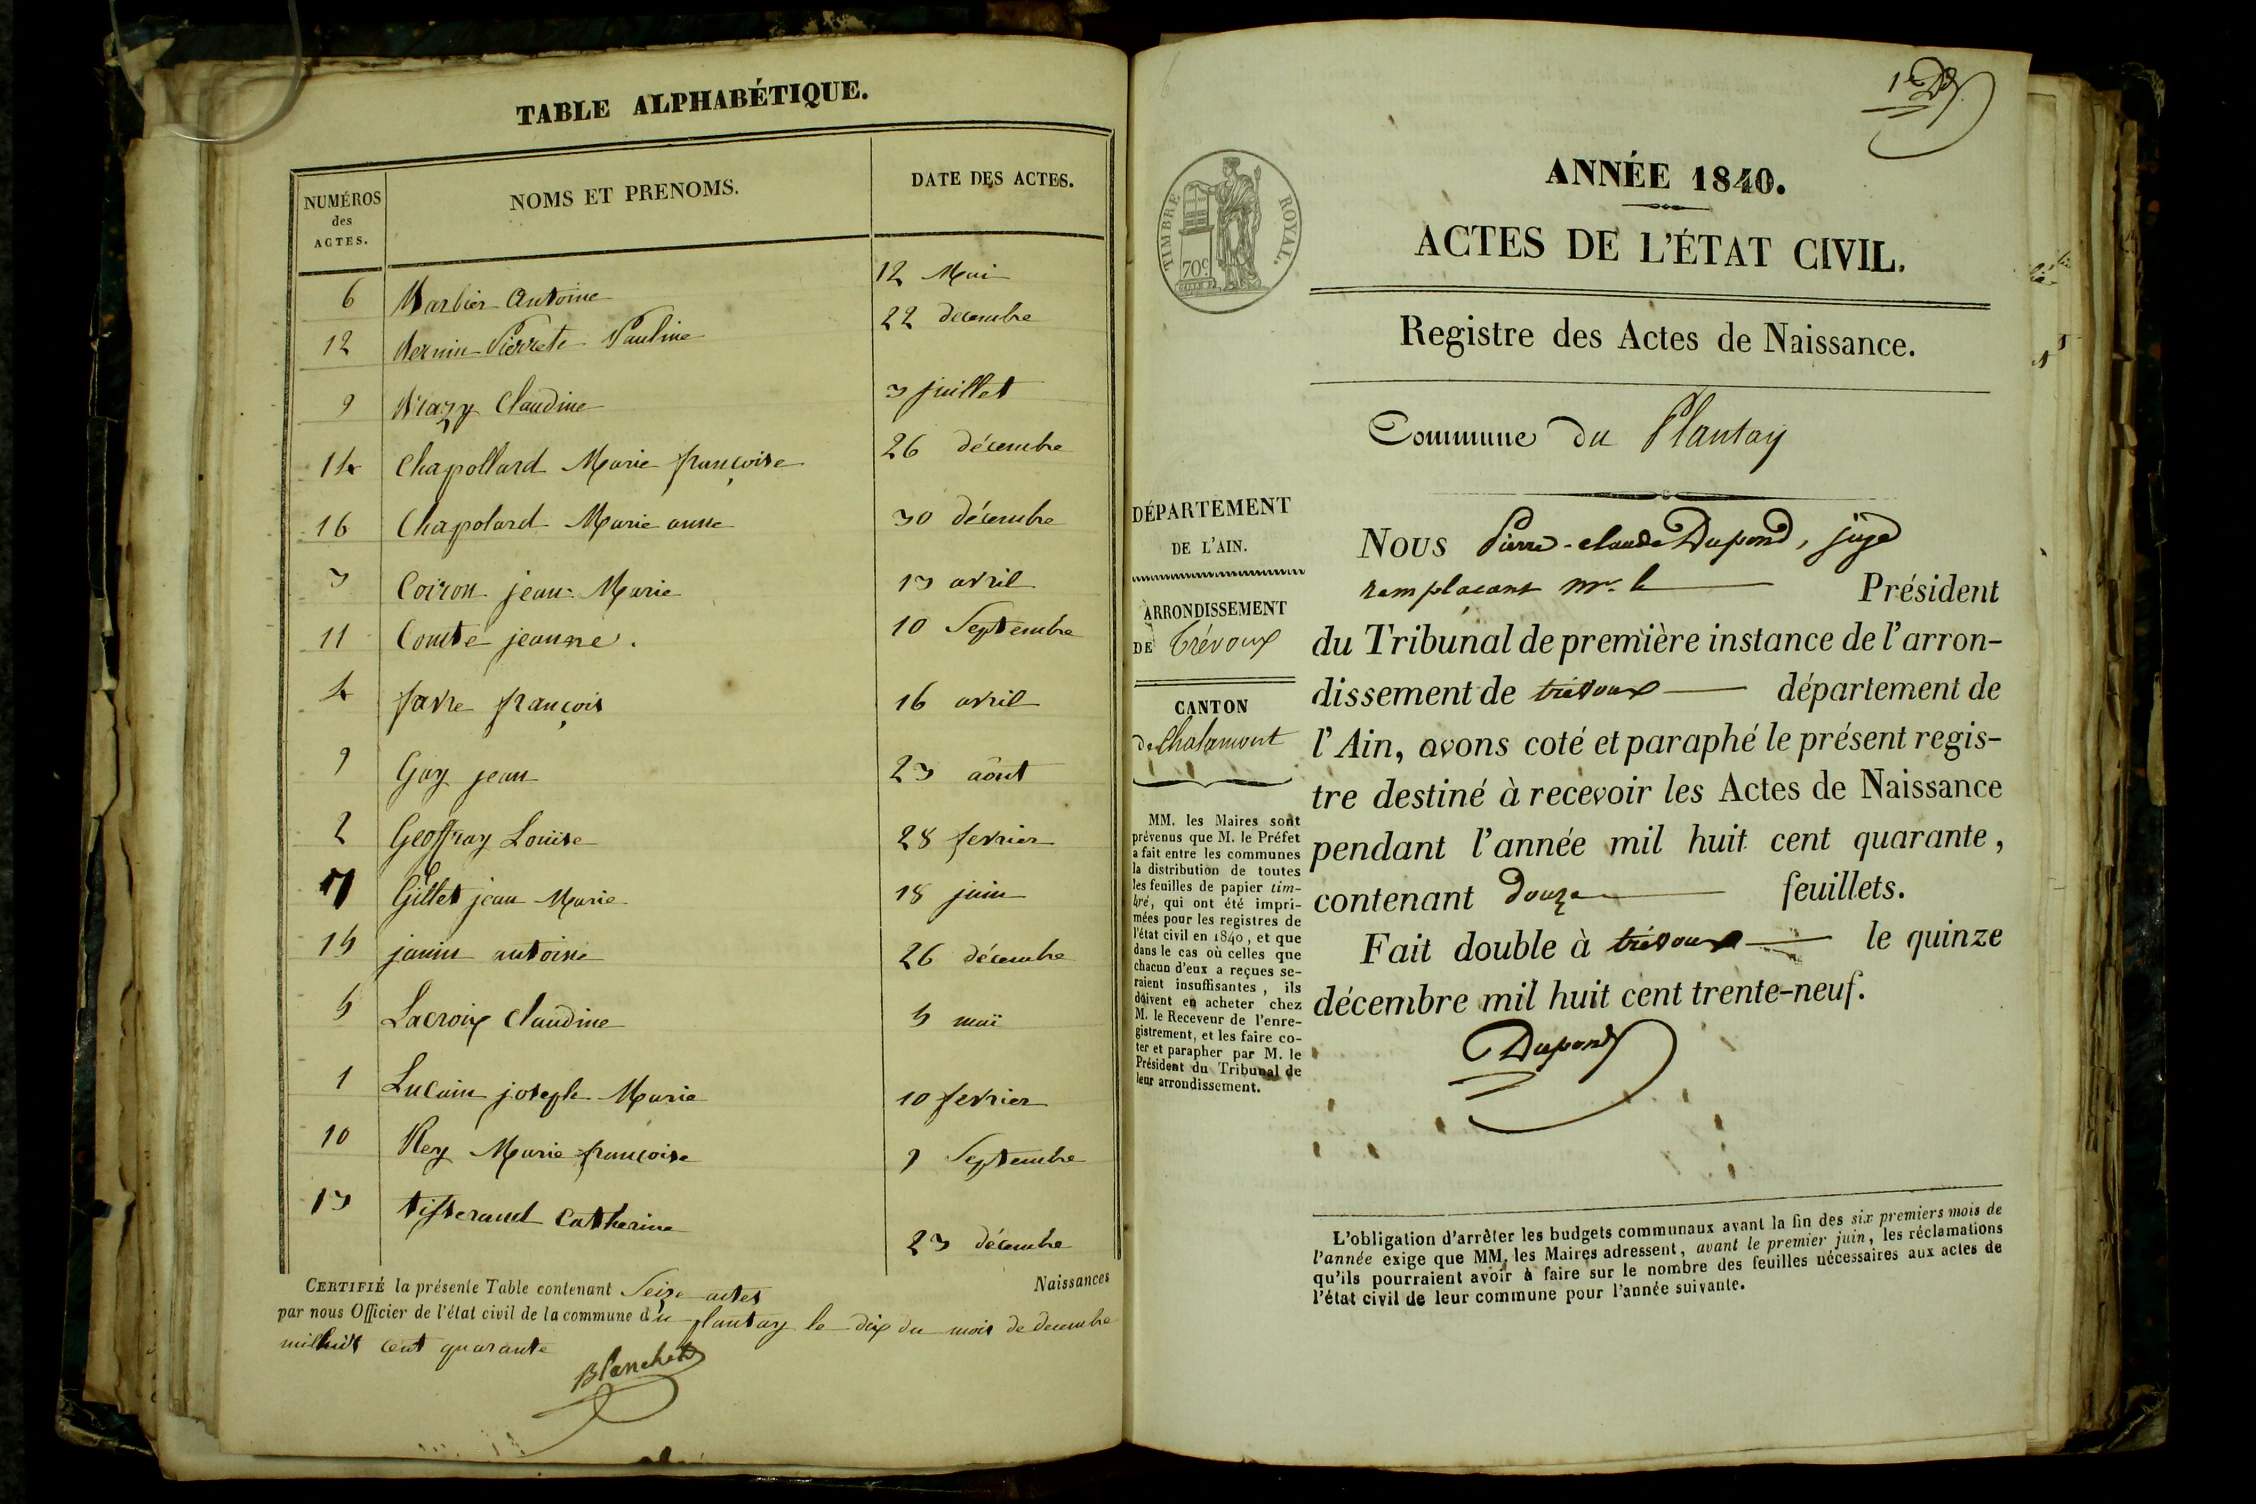 TABLE ALPHABÉTIQUE.
NUMÉROS des ACTES. NOMS ET PRENOMS. DATE DES ACTES.
6 Barbier Antoine 12 Mai
12 Bernin Pierrete Pauline 22 decembre
9 Claudine 3 juillet
14 Chapollard Marie françoise 26 décembre
16 Chapolard Marie anne 30 décembre
3 Coiron jean-Marie 13 avril
11 Comte jeanne. 10 Septembre
4 favre françois 16 avril
9 Gay jean 23 aôut
2 Geoffray Louïse 28 fevrier
7 Gillet jean Marie 18 juin
15 janin antoine 26 décembre
5 Lacroix Claudine 5 maï
1 Lucain joseph Marie 10 fevrier
10 Rey Marie françoise 9 Septembre
13 tisserand Catherine 23 décembre
CERTIFIÉ la présente Table contenant Seize actes Naissances
par nous Officier de l'état civil de la commune du plantay le dix du mois de decembre
mil huit cent quarante
Blanchet
1er D
TIMBRE ROYAL.
70c
ANNÉE 1840.
ACTES DE L'ÉTAT CIVIL.
Registre des Actes de Naissance.
Commune du Plantay
DÉPARTEMENT
DE L'AIN.
ARRONDISSEMENT
DE Trévoux
CANTON
de Chalamont
MM. les Maires sont
prévenus que M. le Préfet
a fait entre les communes
la distribution de toutes
les feuilles de papier tim-
bré, qui ont été impri-
mées pour les registres de
l'état civil en 1840, et que
dans le cas où celles que
chacun d'eux a reçues se-
raient insuffisantes, ils
doivent en acheter chez
M. le Receveur de l'enre-
gistrement, et les faire co-
ter et parapher par M. le
Président du Tribunal de
leur arrondissement.
NOUS Pierre-claude Dupond, juge
remplaçant mr. le Président
du Tribunal de première instance de l'arron-
dissement de trévoux département de
l'Ain, avons coté et paraphé le présent regis-
tre destiné à recevoir les Actes de Naissance
pendant l'année mil huit cent quarante,
contenant douze feuillets.
Fait double à trévoux le quinze
décembre mil huit cent trente-neuf.
Dupond
L'obligation d'arrêter les budgets communaux avant la fin des six premiers mois de
l'année exige que MM. les Maires adressent, avant le premier juin, les réclamations
qu'ils pourraient avoir à faire sur le nombre des feuilles nécessaires aux actes de
l'état civil de leur commune pour l'année suivante.